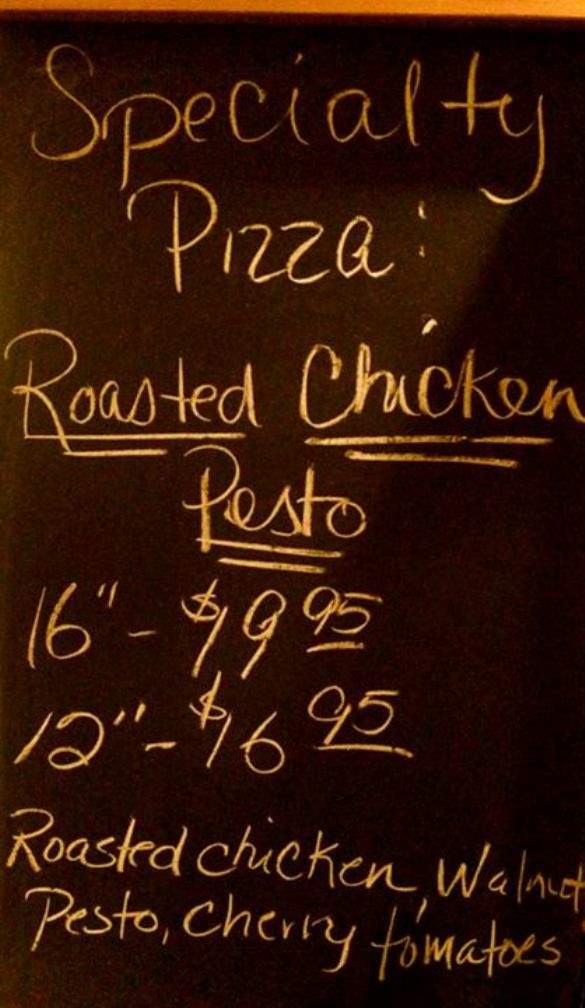 Specialty
Pizza:
Roasted Chicken
Pesto
16" - $19 95
12" - $16 95
Roasted chicken, Walnut
Pesto, Cherry tomatoes